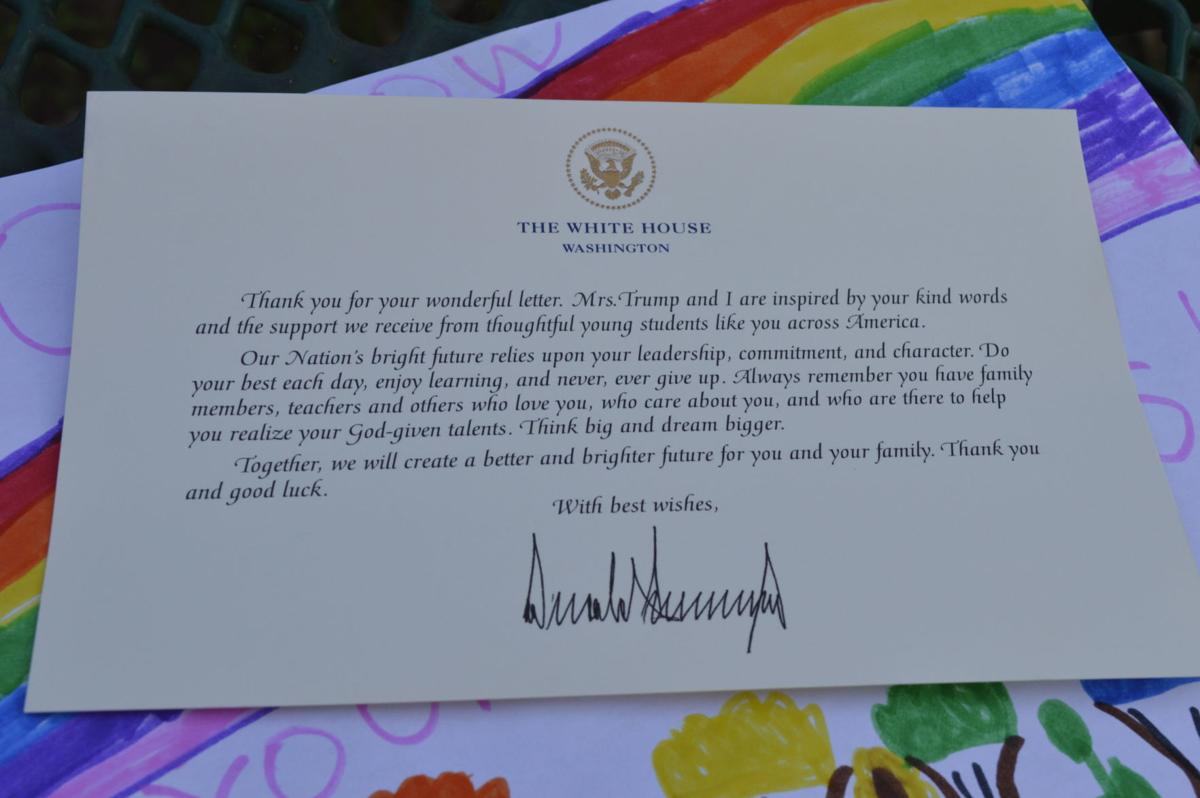 THE WHITE HOUSE
WASHINGTON
Thank you for your wonderful letter. Mrs.Trump and I are inspired by your kind words
and the support we receive from thoughtful young students like you across America.
Our Nation's bright future relies upon your leadership, commitment, and character. Do
your best each day, enjoy learning, and never, ever give up. Always remember you have family
members, teachers and others who love you, who care about you, and who are there to help
you realize your God-given talents. Think big and dream bigger.
Together, we will create a better and brighter future for you and your family. Thank you
and good luck.
With best wishes,
Donald Trump